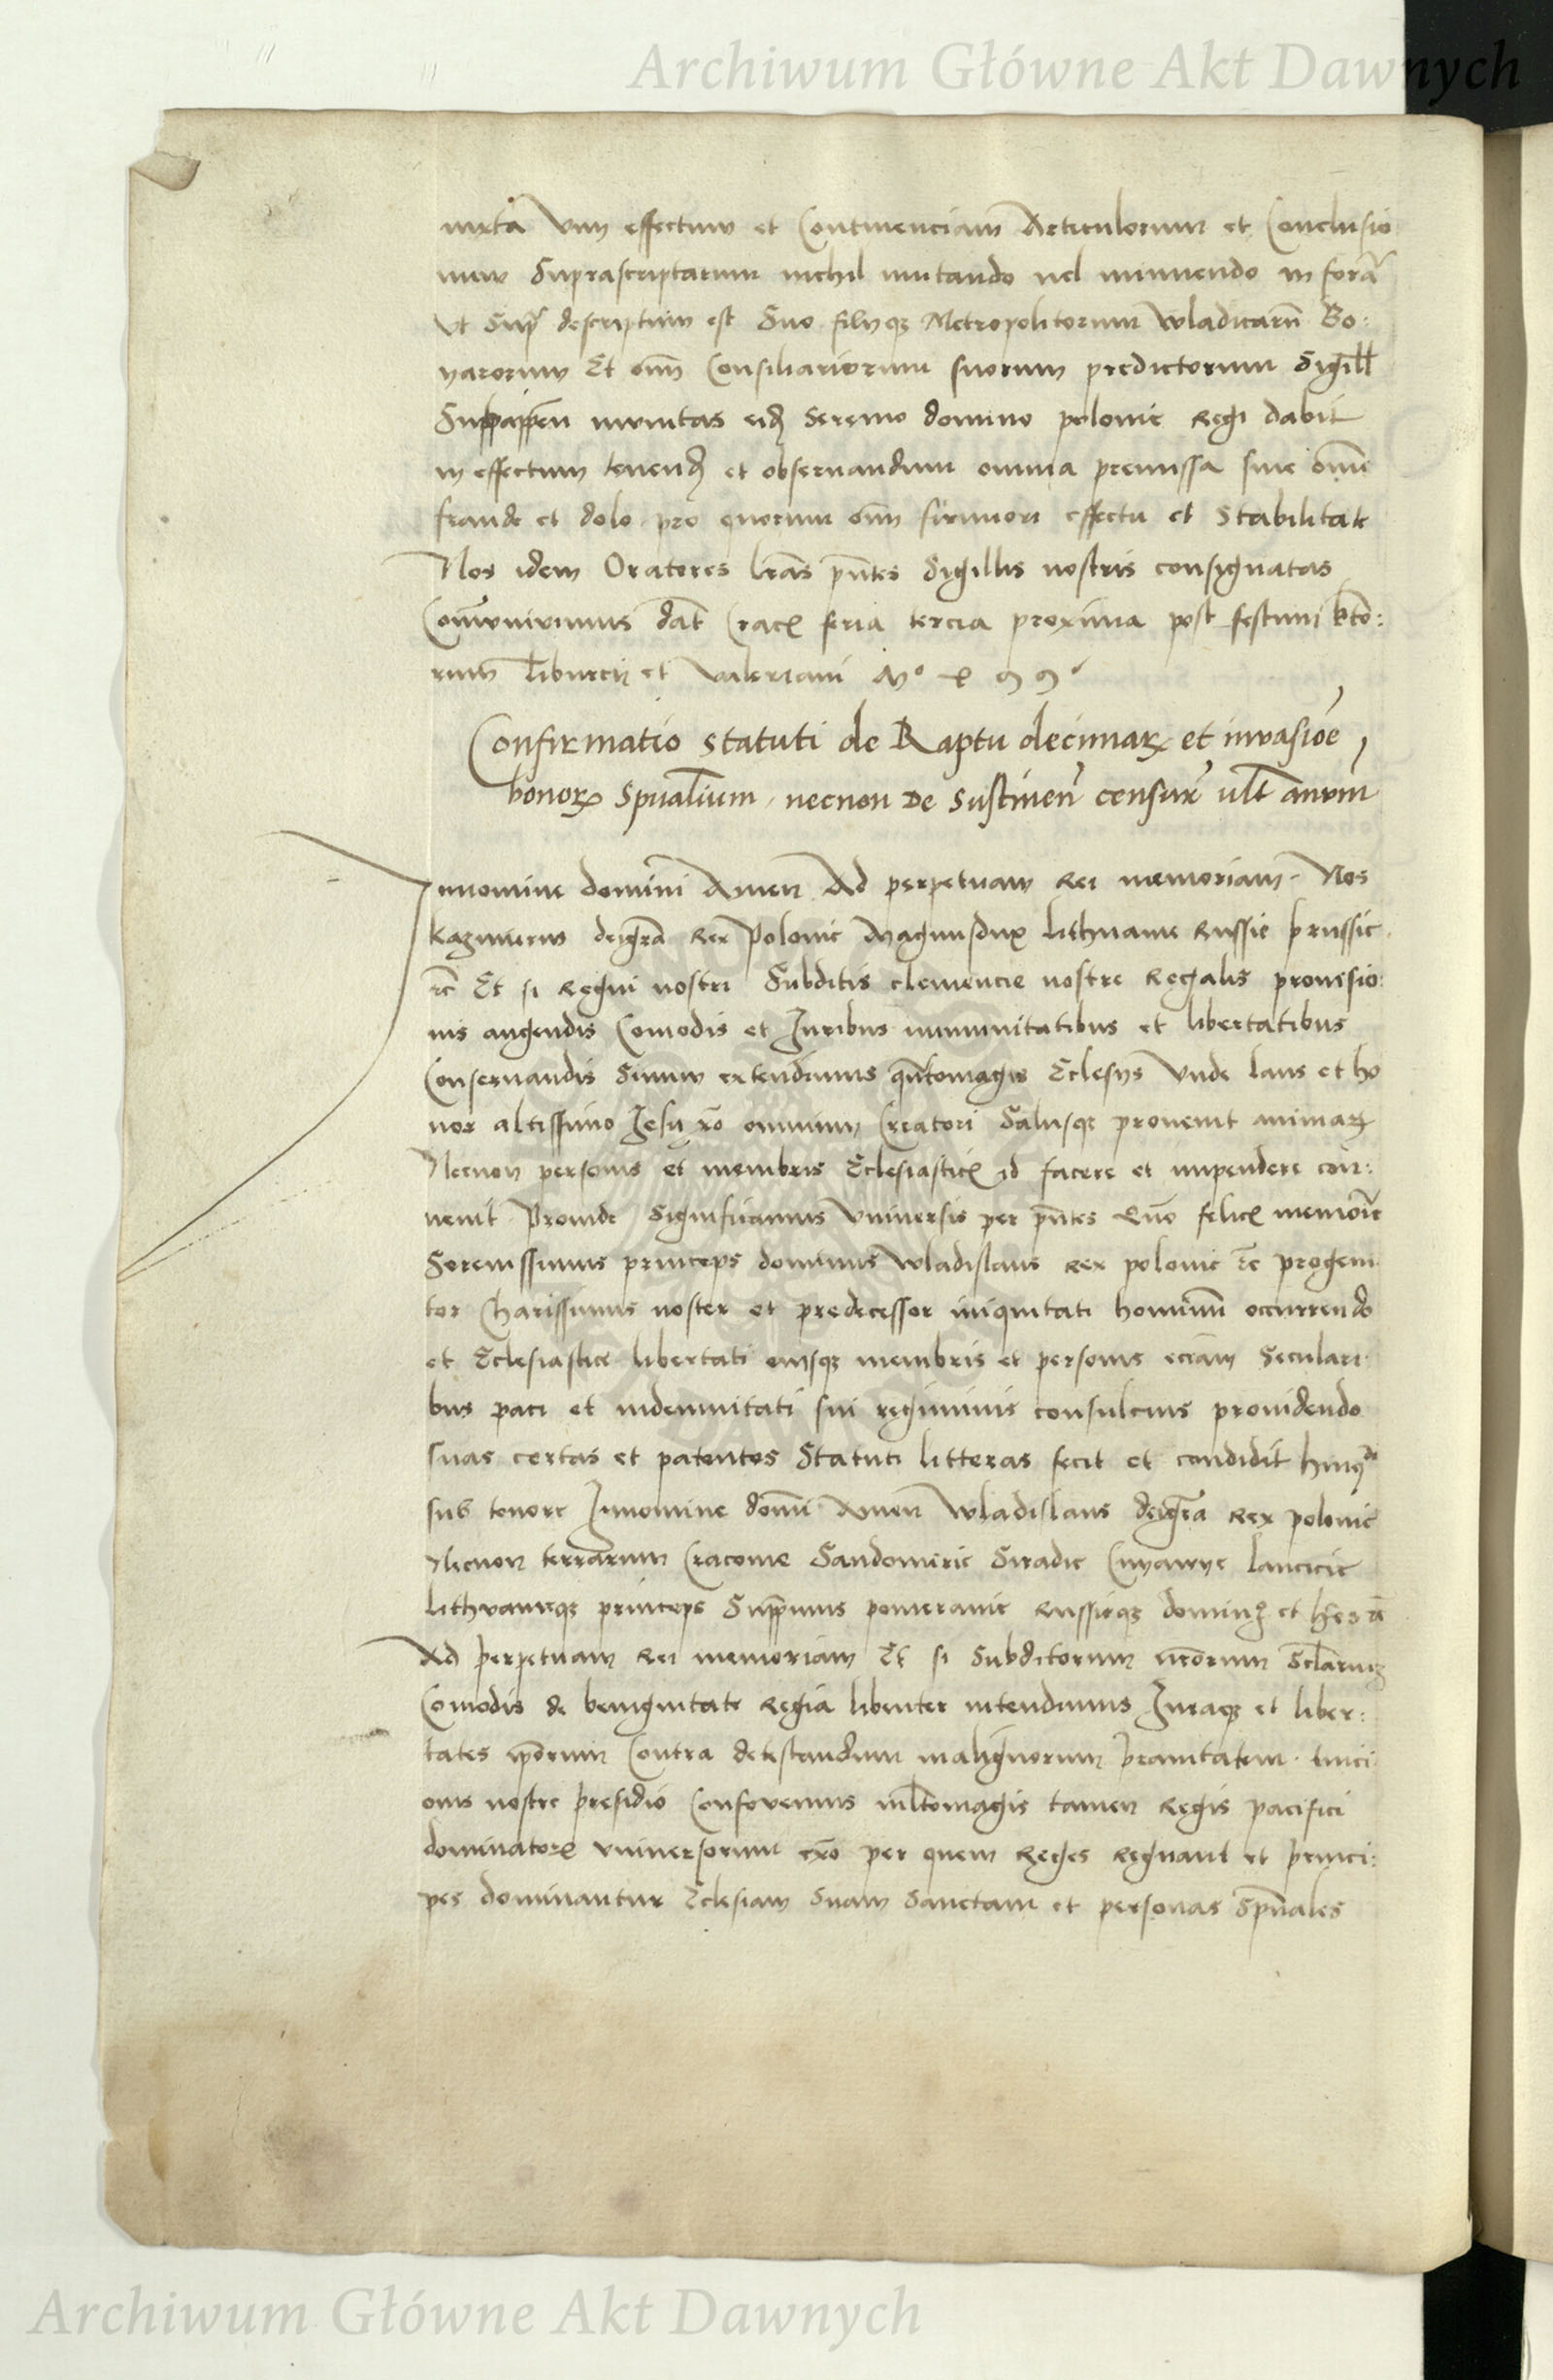 Archiwum Główne Akt Dawnych
iuxta vim effectum et Continenciam Articulorum et Conclusio
num Suprascriptarum nichil mutando vel minuendo in forā
vt Supͣ descriptum est Suo filijqȝ Metropolitorum Wladicarū Bo:
yarorum Et oīm Consiliariorum suorum predictorum Sigill
Subappen munitas eidē Sereno domino polonie Regi dabit
in effectum tenendū et observandum omnia premissa sine omī
fraude et dolo pro quorum oīm firmiori effectu et Stabilitate
Nos idem Oratores lrās pn̄tes Sigillis nostris consignatas
Com̄univimus dat̄ Crac̄ feria tercia proxima post festum sctō:
rum Tiburcij et Valeriani Mº
Confirmatio statuti de Raptu decimarꝝ et invasiōe
bonorꝝ Spūalium, necnon De Sustinen̄ censur̄ ult̄ annum
Innomine domini Amen Ad perpetuam Rei memoriam Nos
Kazimirus deigrā Rex Polonie Magnusdux lithuanie Russie prussie
etc̄ Et si Regni nostri Subditis clemencie nostre Regalis provisio:
nis augendis Comodis et Iuribus immunitatibus et libertatibus
Conservandis Sinum extendimus qūtomagis Eclesijs vnde laus et ho
nor altissimo Iesu xp̄o omnium Creatori Salusqȝ provenit animarꝝ
Necnon personis et membris Eclesiasticꝭ id facere et impendere con:
venit Proinde Significamus Vniversis per pn̄tes Quō felicꝭ memorīe
Serenissimus princeps dominus Wladislaus Rex polonie etc̄ progeni
tor Charissimus noster et predecessor iniquitati hominūm occurrendo
et Eclesiastice libertati eiusqȝ membris et personis eciam Seculari
bus paci et indemnitati sui regiminis consulcius providendo
suas certas et patentes Statuti litteras fecit et condidit huiusmodi
sub tenore Innomine domī Amen Wladislaus deigrā Rex polonie
Necnon terrarum Cracovie Sandomirie Siradie Cuyavye lancicie
lithuanieqȝ princeps Supp̄mus pomeranie Russieqȝ dominꝯ et hēs etc̄
Ad perpetuam Rei memoriam Et si Subditorum nr̄orum Sclarium
Comodis de benignitate Regia libenter intendimus Iuraqȝ et liber:
tates ip̄orum Contra detestandum malignorum pravitatem tuici
onis nostre presidio Confovemus ml̄tomagis tamen Regis pacifici
dominatorꝭ vniversorum xp̄o per quem Reges Regnant et princi:
pes dominantur Eclesiam Suam Sanctam et personas Spūales
Archiwum Główne Akt Dawnych